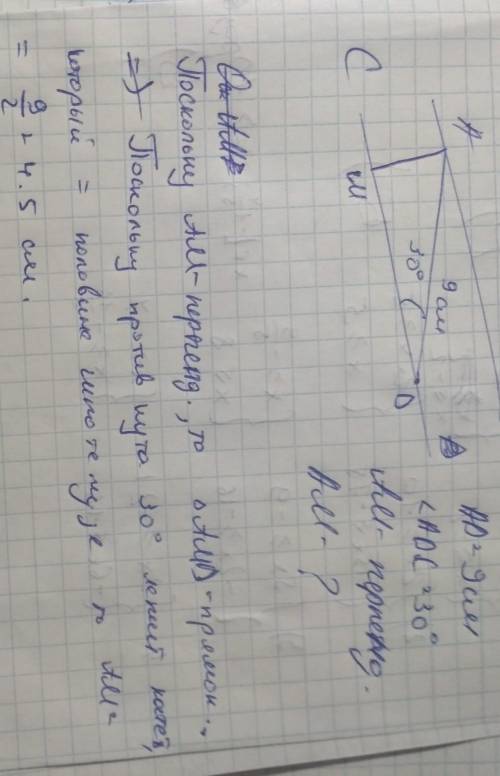 AD = 9 см
<ADC = 30°
AM - перпенд.
AM - ?
A
9 см
C
M
30°
D
Поскольку AM - перпенд., то △AMD - прямоу.,
=> Поскольку против кута 30° лежит катет,
который = половине гипотенузе, то AM =
= 9/2 = 4.5 см.